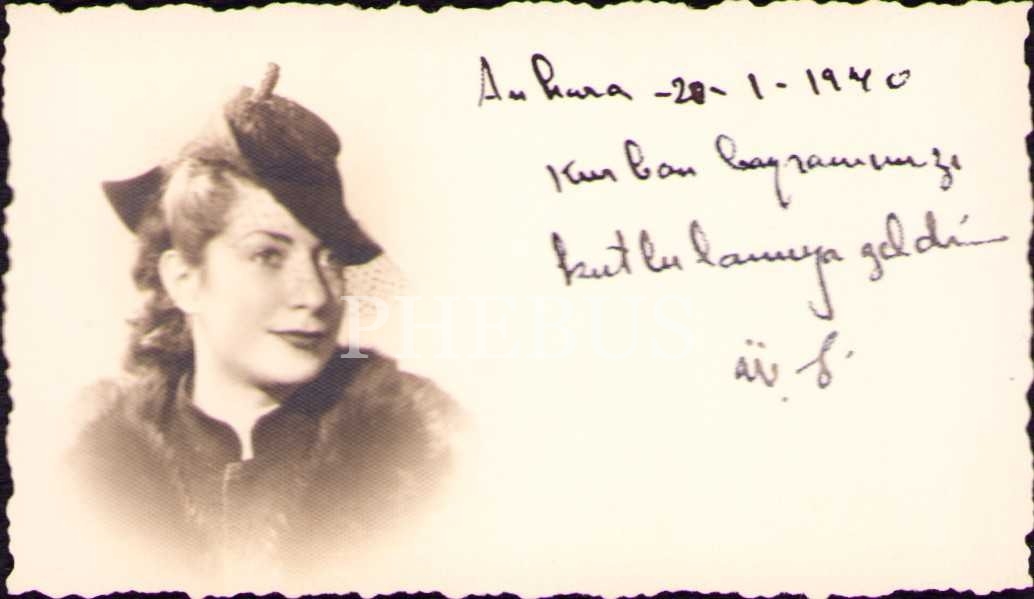 Ankara - 20 - 1 - 1940
Kurban bayramınızı
kutlulamıya geldim
PHEBUS